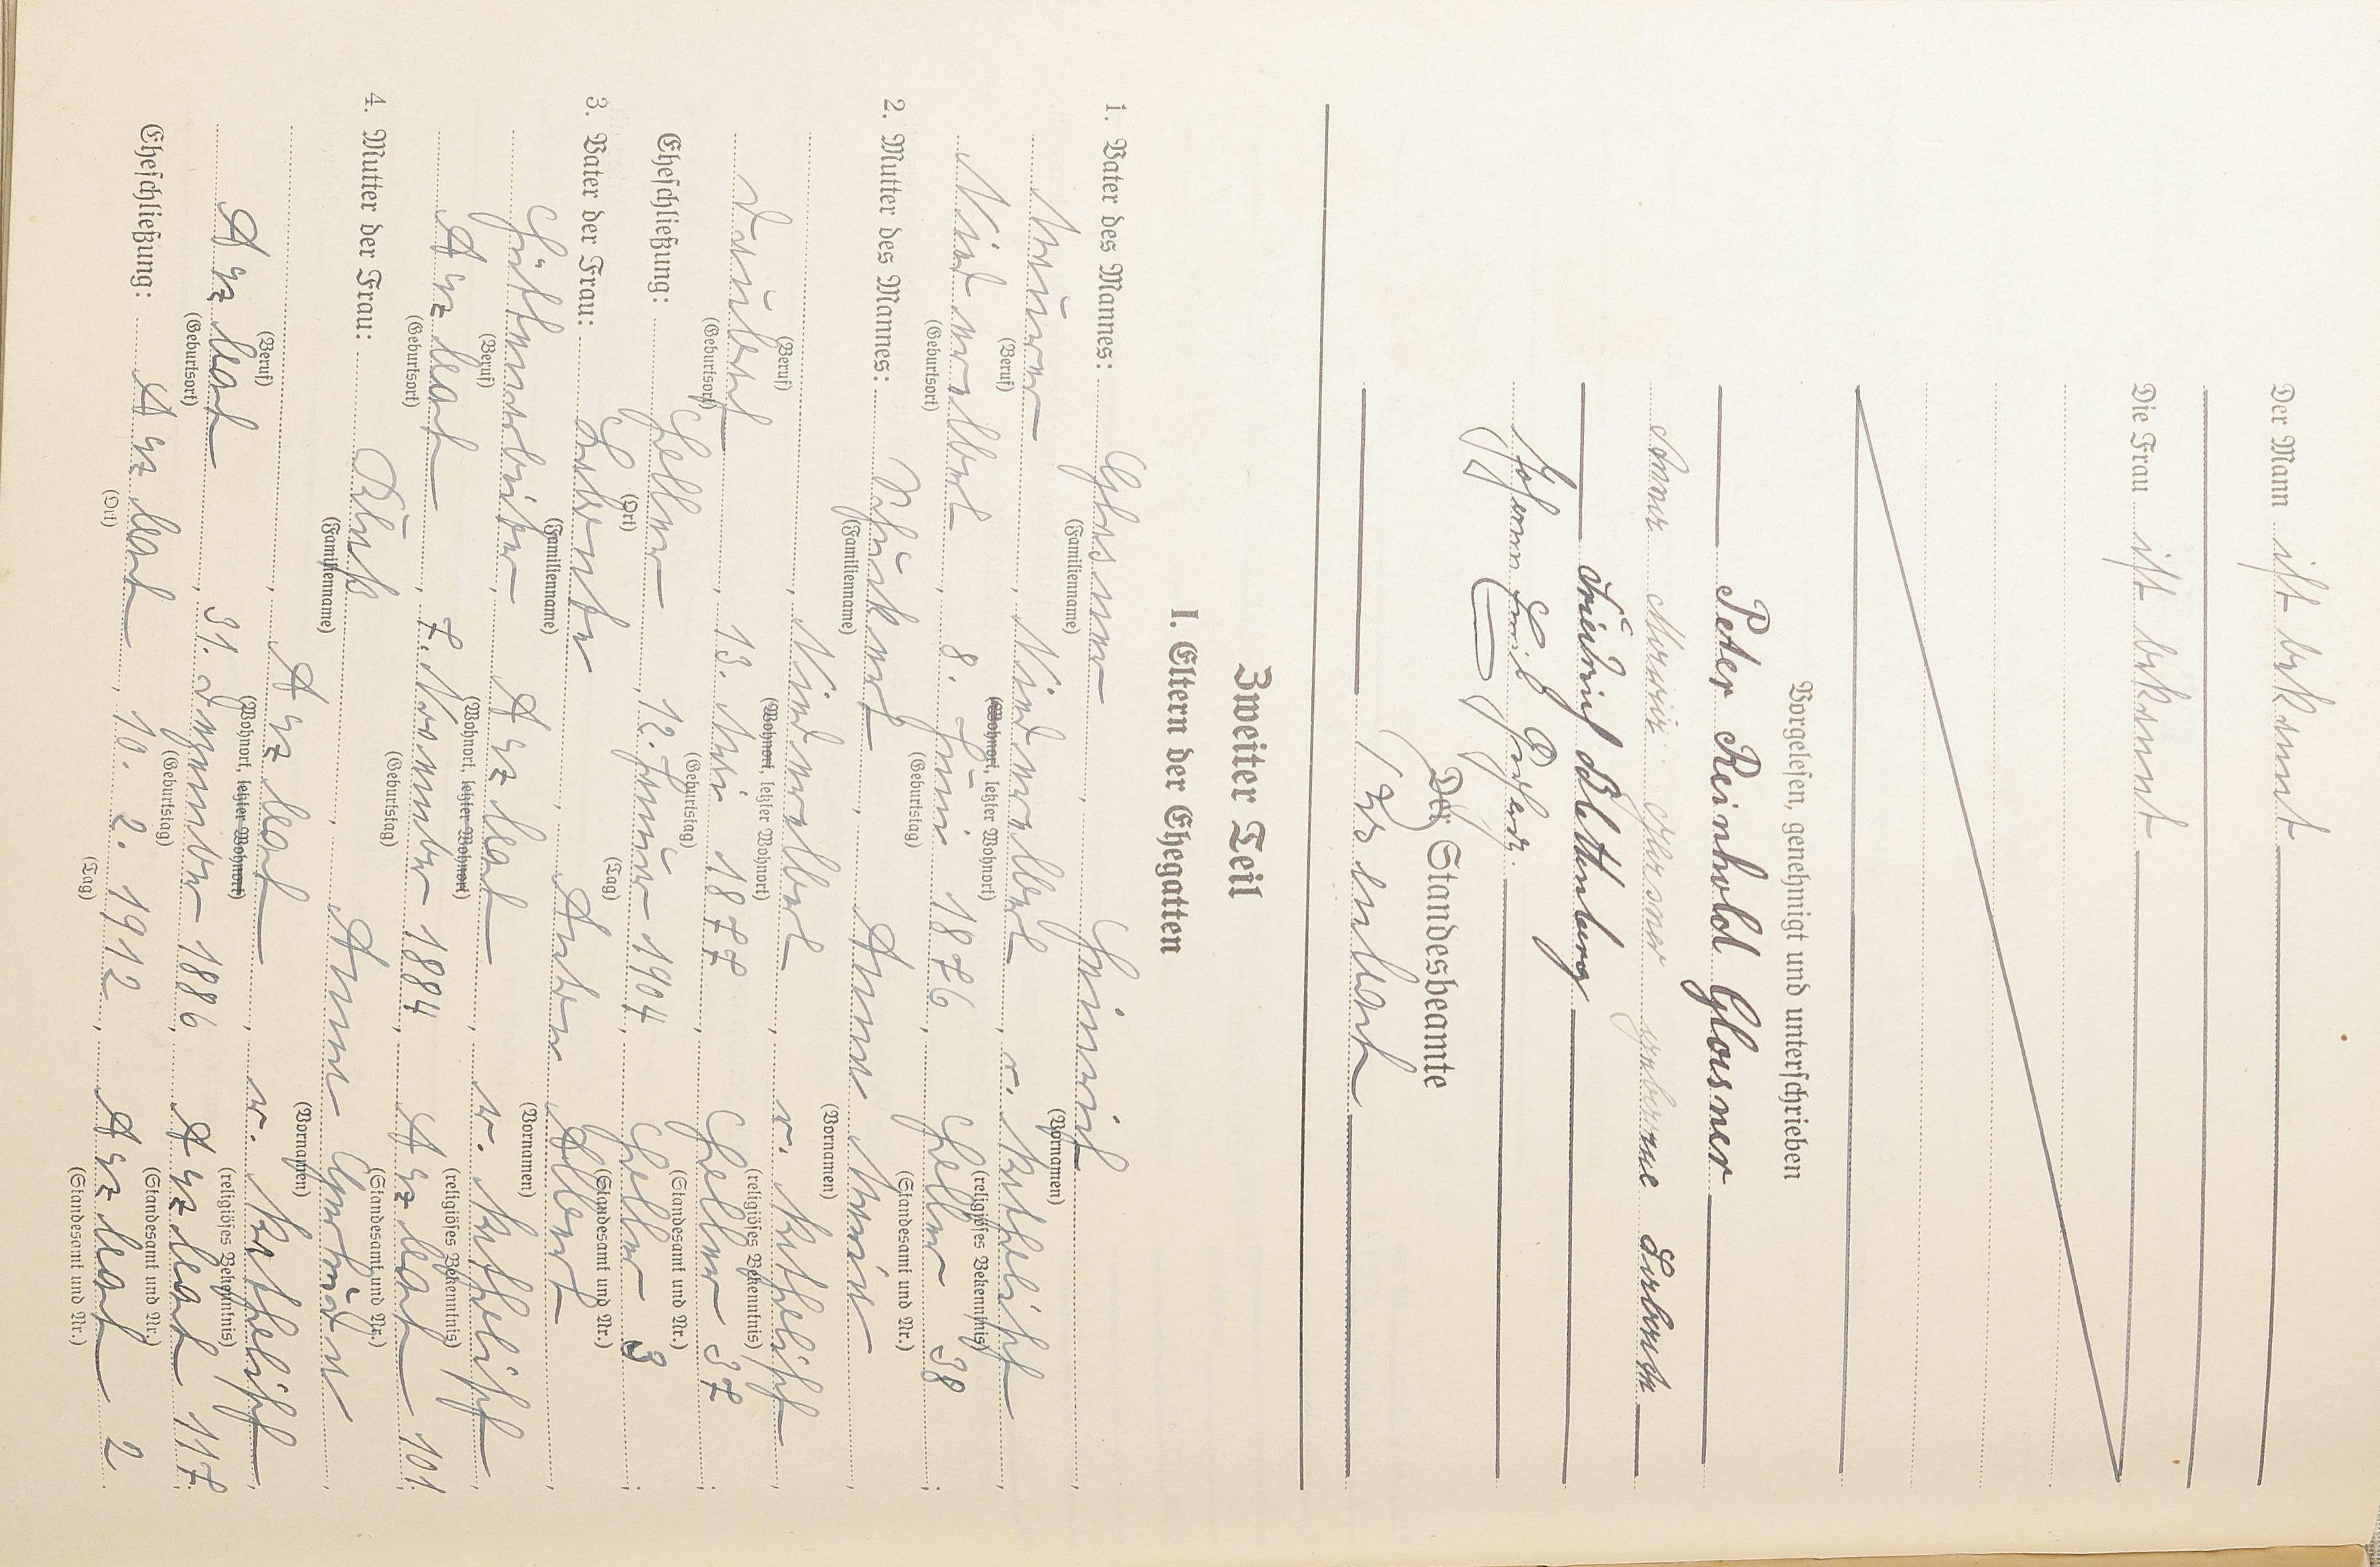 Der Mann ist bekannt
Die Frau ist bekannt
Vorgelesen, genehmigt und unterschrieben
Peter Reinhold Glasner
Anna Maria Glasner geborene Labonte
Friedrich Blettenberg
Johann Emil
Der Standesbeamte
Zweiter Teil
I. Eltern der Ehegatten
1. Vater des Mannes: Glasner, Heinrich,
(Familienname) (Vornamen)
Maurer, Niederelbert, r. katholisch,
(Beruf) (Wohnort, letzter Wohnort) (religiöses Bekenntnis)
Niederelbert, 8. Juni 1876, Holler 38;
(Geburtsort) (Geburtstag) (Standesamt und Nr.)
2. Mutter des Mannes: Anna Maria,
(Familienname) (Vornamen)
, Niederelbert, r. katholisch,
(Beruf) (Wohnort, letzter Wohnort) (religiöses Bekenntnis)
Daubach, 13. Mai 1877, Holler 37;
(Geburtsort) (Geburtstag) (Standesamt und Nr.)
Eheschließung: Holler, 12. Januar 1904, Holler 3;
(Ort) (Tag) (Standesamt und Nr.)
3. Vater der Frau: Labonte, Anton Albert,
(Familienname) (Vornamen)
Hüttenarbeiter, Arzbach, r. katholisch,
(Beruf) (Wohnort, letzter Wohnort) (religiöses Bekenntnis)
Arzbach, 7. November 1884, Arzbach 101;
(Geburtsort) (Geburtstag) (Standesamt und Nr.)
4. Mutter der Frau: Anna Gertrude,
(Familienname) (Vornamen)
, Arzbach, r. katholisch,
(Beruf) (Wohnort, letzter Wohnort) (religiöses Bekenntnis)
Arzbach, 31. Dezember 1886, Arzbach 117;
(Geburtsort) (Geburtstag) (Standesamt und Nr.)
Eheschließung: Arzbach, 10. 2. 1912, Arzbach 2.
(Ort) (Tag) (Standesamt und Nr.)